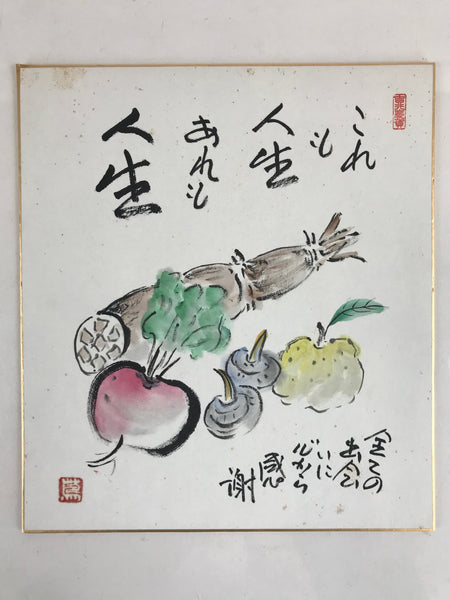 これも
人生
あれも
人生
全ての
出会
いに
心から
感
謝